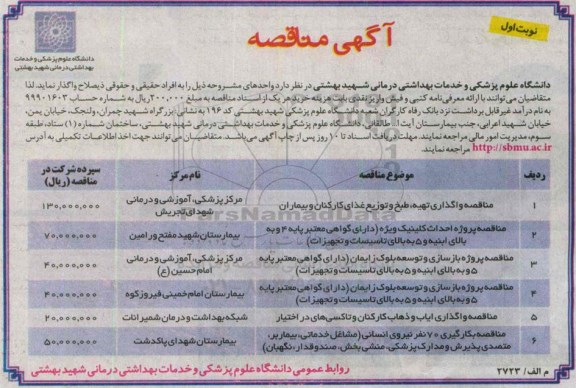 نوبت اول
آگهی مناقصه
دانشگاه علوم پزشکی و خدمات
بهداشتی درمانی شهید بهشتی
دانشگاه علوم پزشکی و خدمات بهداشتی درمانی شهید بهشتی در نظر دارد واحدهای مشروحه ذیل را به افراد حقیقی و حقوقی ذیصلاح واگذار نماید. لذا
متقاضیان می‌توانند با ارائه معرفی‌نامه کتبی و فیش واریز نقدی بابت هزینه خرید هر یک از اسناد مناقصه به مبلغ ۲۰۰,۰۰۰ ریال به شماره حساب ۹۹۹۰۱۶۰۳
به نام درآمد غیر قابل برداشت نزد بانک رفاه کارگران شعبه دانشگاه علوم پزشکی شهید بهشتی کد ۱۹۶ به نشانی: بزرگراه شهید چمران، ولنجک، خیابان یمن،
خیابان شهید اعرابی، جنب بیمارستان آیت‌ا... طالقانی، دانشگاه علوم پزشکی و خدمات بهداشتی درمانی شهید بهشتی، ساختمان شماره (۱) ستاد، طبقه
سوم، مدیریت امور مالی مراجعه نمایند. مهلت دریافت اسناد تا ۱۰ روز پس از چاپ آگهی می‌باشد. متقاضیان می‌توانند جهت اخذ اطلاعات تکمیلی به آدرس
http://sbmu.ac.ir مراجعه نمایند.
ردیف موضوع مناقصه نام مرکز سپرده شرکت در مناقصه (ریال)
۱ مناقصه واگذاری تهیه، طبخ و توزیع غذای کارکنان و بیماران مرکز پزشکی، آموزشی و درمانی شهدای تجریش ۱۳۰,۰۰۰,۰۰۰
۲ مناقصه پروژه احداث کلینیک ویژه (دارای گواهی معتبر پایه ۴ و به بالای ابنیه و ۵ به بالای تاسیسات و تجهیزات) بیمارستان شهید مفتح ورامین ۷۰,۰۰۰,۰۰۰
۳ مناقصه پروژه بازسازی و توسعه بلوک زایمان (دارای گواهی معتبر پایه ۵ و به بالای ابنیه و ۵ به بالای تاسیسات و تجهیزات) مرکز پزشکی، آموزشی و درمانی امام حسین (ع) ۴۰,۰۰۰,۰۰۰
۴ مناقصه پروژه بازسازی و توسعه بلوک زایمان (دارای گواهی معتبر پایه ۵ و به بالای ابنیه و ۵ به بالای تاسیسات و تجهیزات) بیمارستان امام خمینی فیروزکوه ۴۰,۰۰۰,۰۰۰
۵ مناقصه واگذاری ایاب و ذهاب کارکنان و تاکسی‌های در اختیار شبکه بهداشت و درمان شمیرانات ۲۰,۰۰۰,۰۰۰
۶ مناقصه بکارگیری ۷۰ نفر نیروی انسانی (مشاغل خدماتی، بیماربر، متصدی پذیرش و مدارک پزشکی، منشی بخش، صندوقدار، نگهبان) بیمارستان شهدای پاکدشت ۵۰,۰۰۰,۰۰۰
م الف/ ۲۷۲۳
روابط عمومی دانشگاه علوم پزشکی و خدمات بهداشتی درمانی شهید بهشتی
ParsNamadData